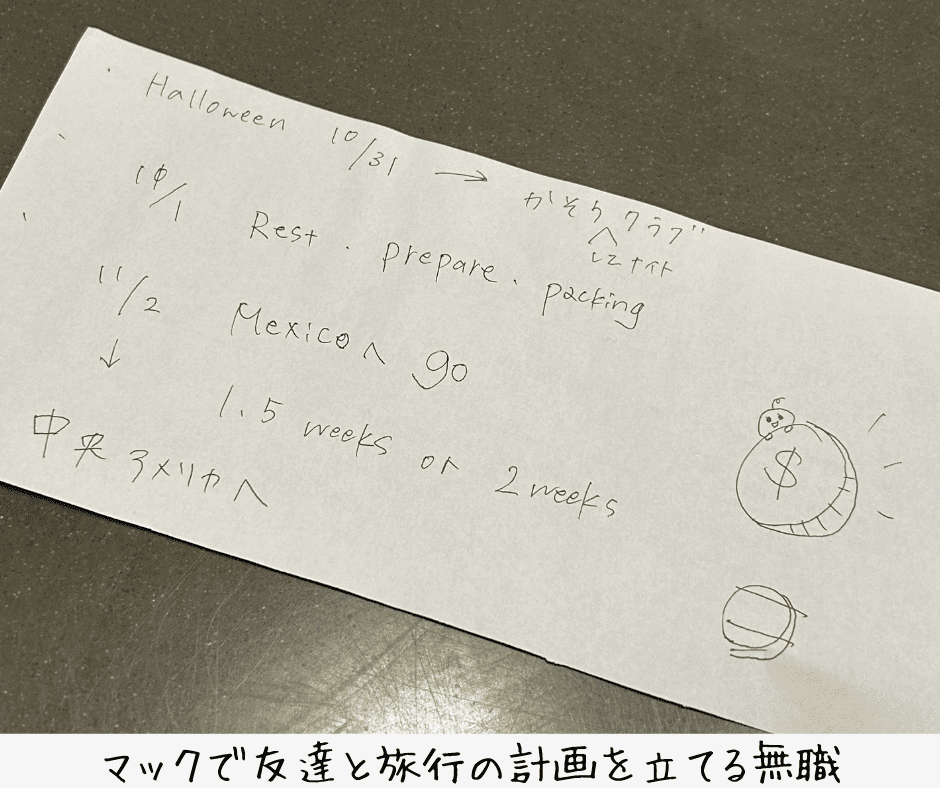 ・ Halloween 10/31 → かそうクラブ
レズナイト
11/1 Rest . prepare . packing
11/2 Mexicoへ go
↓ 1.5 weeks or 2 weeks
中央アメリカへ
$
マックで友達と旅行の計画を立てる無職